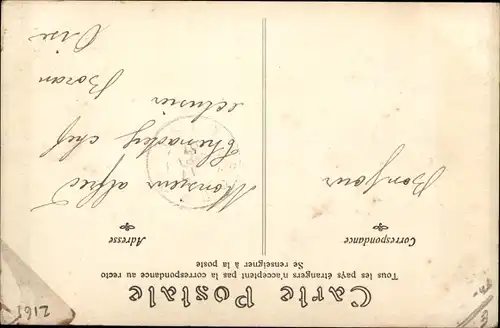 Carte Postale
Tous les pays étrangers n'acceptent pas la correspondance au recto
Se renseigner à la poste
Correspondance
Adresse
Bonjour
Monsieur alfred
chef
eclusier Boran
Oise
2161